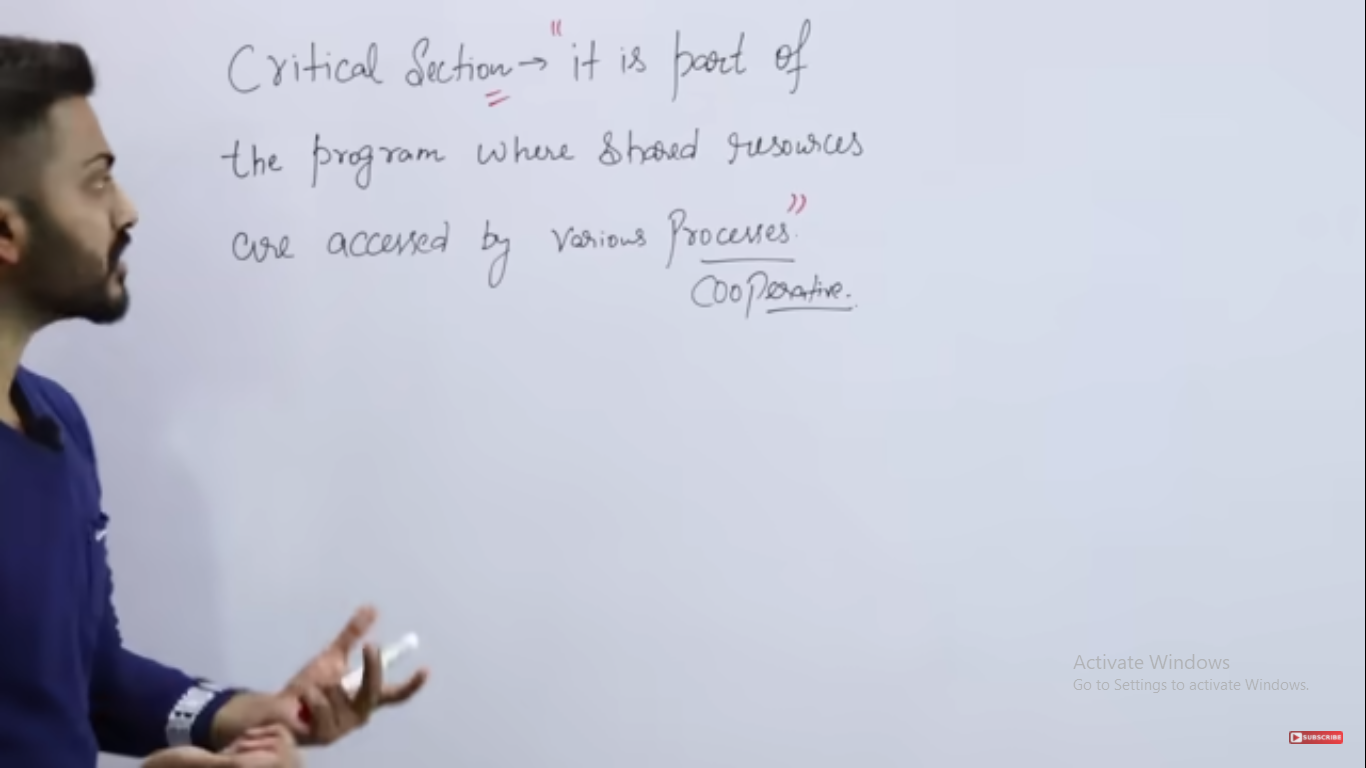 Critical Section → "it is part of
the program where shared resources
are accessed by various Processes".
Cooperative.
Activate Windows
Go to Settings to activate Windows.
SUBSCRIBE